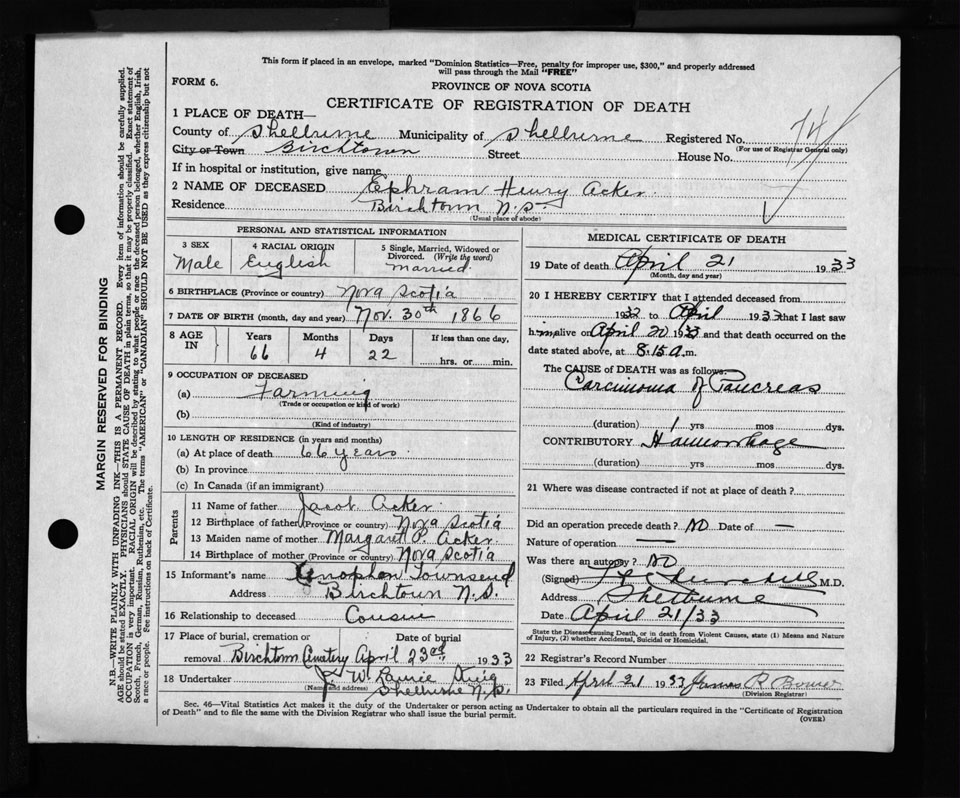 This form if placed in an envelope, marked "Dominion Statistics—Free, penalty for improper use, $300," and properly addressed
will pass through the Mail "FREE"
FORM 6.
PROVINCE OF NOVA SCOTIA
CERTIFICATE OF REGISTRATION OF DEATH
1 PLACE OF DEATH—
County of Shelburne Municipality of Shelburne Registered No. 74
(For use of Registrar General only)
City or Town Birchtown Street House No.
If in hospital or institution, give name
2 NAME OF DECEASED Ephram Henry Acker
Residence Birchtown N.S.
(Usual place of abode)
PERSONAL AND STATISTICAL INFORMATION
3 SEX 4 RACIAL ORIGIN 5 Single, Married, Widowed or
Divorced. (Write the word)
Male English Married
6 BIRTHPLACE (Province or country) Nova Scotia
7 DATE OF BIRTH (month, day and year) Nov. 30th 1866
8 AGE IN Years Months Days If less than one day,
66 4 22 hrs. or min.
9 OCCUPATION OF DECEASED
(a) Farming
(Trade or occupation or kind of work)
(b)
(Kind of industry)
10 LENGTH OF RESIDENCE (in years and months)
(a) At place of death 66 years
(b) In province
(c) In Canada (if an immigrant)
Parents
11 Name of father Jacob Acker
12 Birthplace of father (Province or country) Nova Scotia
13 Maiden name of mother Margaret P. Acker
14 Birthplace of mother (Province or country) Nova Scotia
15 Informant's name Xenophon Townsend
Address Birchtown N.S.
16 Relationship to deceased Cousin
17 Place of burial, cremation or Date of burial
removal Birchtown Cemetery April 23rd 1933
18 Undertaker J. W. Laurie King
(Name and address) Shelburne N.S.
MEDICAL CERTIFICATE OF DEATH
19 Date of death April 21 1933
(Month, day and year)
20 I HEREBY CERTIFY that I attended deceased from
1932 to April 1933 that I last saw
him alive on April 20 1933 and that death occurred on the
date stated above, at 8.15 a.m.
The CAUSE of DEATH was as follows:
Carcinoma of Pancreas
(duration) 1 yrs mos dys.
CONTRIBUTORY Haemorrhage
(duration) yrs mos dys.
21 Where was disease contracted if not at place of death?
Did an operation precede death? NO Date of —
Nature of operation —
Was there an autopsy? NO
(Signed) Churchill M.D.
Address Shelburne
Date April 21/33
State the Disease causing Death, or in death from Violent Causes, state (1) Means and Nature
of Injury, (2) whether Accidental, Suicidal or Homicidal.
22 Registrar's Record Number
23 Filed April 21 1933 James R Bower
(Division Registrar)
Sec. 46—Vital Statistics Act makes it the duty of the Undertaker or person acting as Undertaker to obtain all the particulars required in the "Certificate of Registration
of Death" and to file the same with the Division Registrar who shall issue the burial permit.
(OVER)
MARGIN RESERVED FOR BINDING
N.B.—WRITE PLAINLY WITH UNFADING INK—THIS IS A PERMANENT RECORD. Every item of information should be carefully supplied.
AGE should be stated EXACTLY. PHYSICIANS should STATE CAUSE OF DEATH in plain terms, so that it may be properly classified. Exact statement of
OCCUPATION is very important. RACIAL ORIGIN will be described by stating to what people or race the deceased person belonged, whether English, Irish,
Scotch, French, German, Russian, Ruthenian, etc. The terms "AMERICAN" or "CANADIAN" SHOULD NOT BE USED as they express citizenship but not
a race or people. See instructions on back of Certificate.